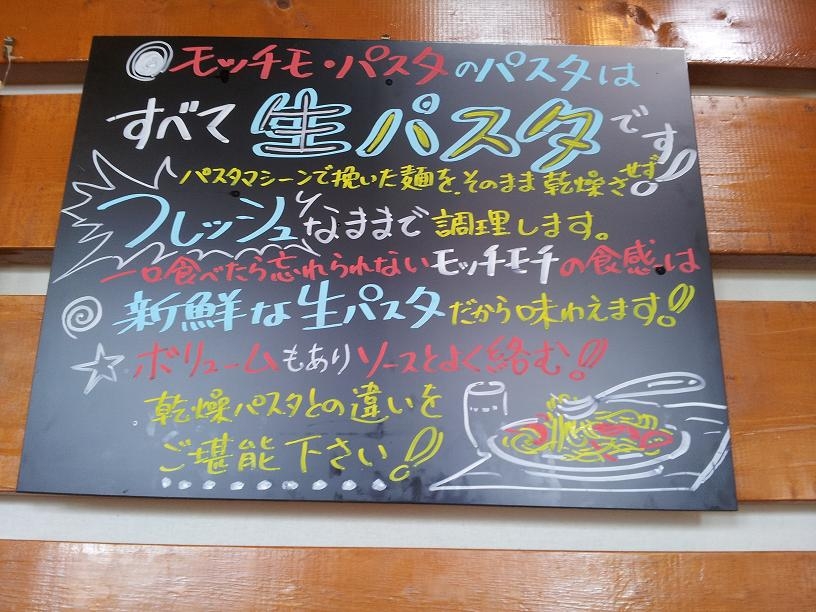 モッチモ・パスタのパスタは
すべて生パスタです!!
パスタマシーンで挽いた麺を、そのまま乾燥させず!
フレッシュなままで調理します。
一口食べたら忘れられないモッチモチの食感は
新鮮な生パスタだから味わえます!!
ボリュームもありソースとよく絡む!!
乾燥パスタとの違いを
ご堪能下さい!!